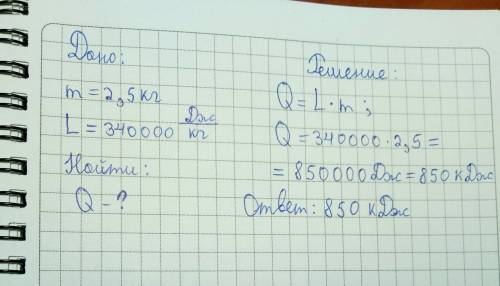 Дано:
m = 2,5 кг
L = 340000 Дж/кг
Найти:
Q - ?
Решение:
Q = L · m ;
Q = 340000 · 2,5 =
= 850000 Дж = 850 кДж
Ответ: 850 кДж